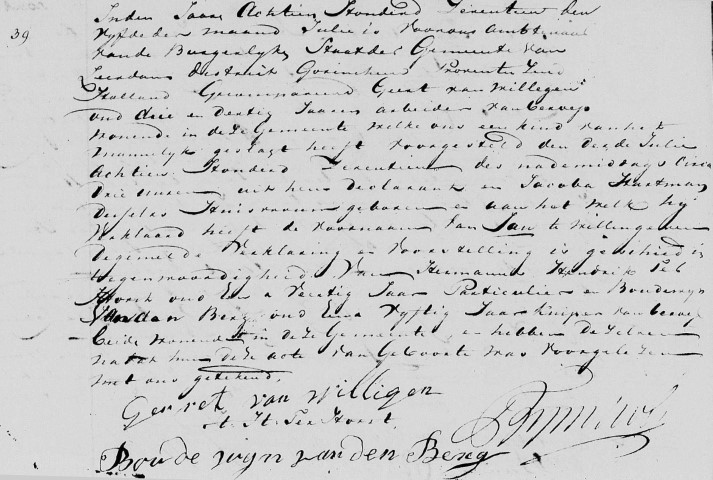 39
In den Jaare Achtien Honderd Zeventien den
Vyfde der maand Julie is voor ons Ambtenaar
van de Burgerlyke Staat der Gemeente van
Leerdam district Gorinchem Provintie Zuid
Holland Gecompareerd Gerret van Willegen
oud drie en dertig Jaaren arbeider van beroep
wonende in deze Gemeente welke ons een kind van het
mannelyk geslagt heeft voorgesteld den derde Julie
Achtien Honderd Zeventien des nademiddags Circa
drie uuren uit hem declarant en Jacoba Hartman
desselvs Huisvrouw geboren en aan het welk hy
Verklaard heeft de voornaam van Jan te willen geven
de gemelde Verklaring en Voorstelling is geschied in
tegenwoordigheid Van Hermannus Hendrik Ter
Horst oud Een a Veertig Jaar Particulier en Boudewyn
Van den Berg oud Een a Vyftig Jaar Kuiper van beroep
beide wonende in deze Gemeente, en hebben dezelven
na dat hun deze acte van Geboorte was voorgelezen
met ons getekend.
Gerret van Willigen
H. H. Ter Horst
Boudewyn van den Berg